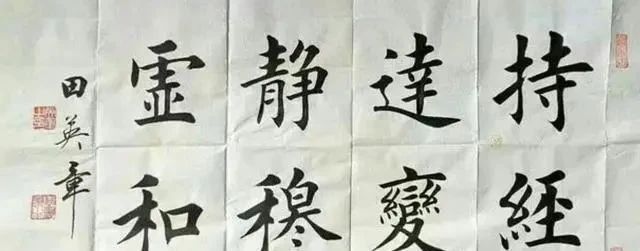 持經
達變
静穆
虚和
田英章